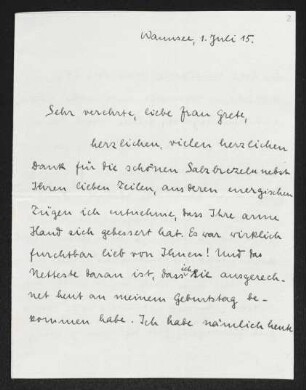 2
Wannsee, 1. Juli 15.
Sehr verehrte, liebe Frau Grete,
herzlichen, vielen herzlichen
Dank für die schönen Salzbrezeln nebst
Ihren lieben Zeilen, aus deren energischen
Zügen ich entnehme, dass Ihre arme
Hand sich gebessert hat. Es war wirklich
furchtbar lieb von Ihnen! Und das
Netteste daran ist, dass ich die ausgerech-
net heut an meinem Geburtstag be-
kommen habe. Ich habe nämlich heute